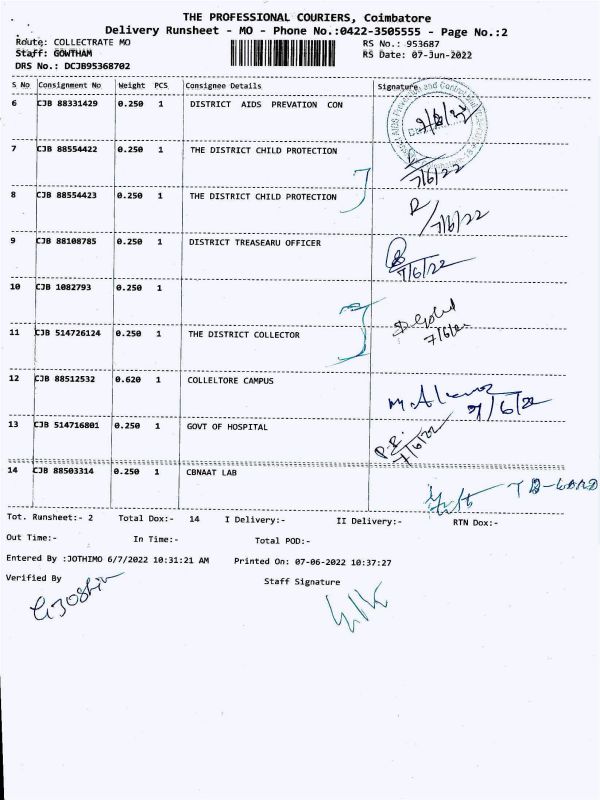 THE PROFESSIONAL COURIERS, Coimbatore
Delivery Runsheet - MO - Phone No.:0422-3505555 - Page No.:2
Route: COLLECTRATE MO RS No.: 953687
Staff: GOWTHAM RS Date: 07-Jun-2022
DRS No.: DCJB95368702
S No Consignment No Weight PCS Consignee Details Signature
6 CJB 88331429 0.250 1 DISTRICT AIDS PREVATION CON
7 CJB 88554422 0.250 1 THE DISTRICT CHILD PROTECTION
7/6/22
8 CJB 88554423 0.250 1 THE DISTRICT CHILD PROTECTION
7/6/22
9 CJB 88108785 0.250 1 DISTRICT TREASEARU OFFICER
7/6/22
10 CJB 1082793 0.250 1
11 CJB 514726124 0.250 1 THE DISTRICT COLLECTOR
12 CJB 88512532 0.620 1 COLLELTORE CAMPUS
7/6/22
13 CJB 514716801 0.250 1 GOVT OF HOSPITAL
7/6/22
14 CJB 88503314 0.250 1 CBNAAT LAB
Tot. Runsheet:- 2 Total Dox:- 14 I Delivery:- II Delivery:- RTN Dox:-
Out Time:- In Time:- Total POD:-
Entered By :JOTHIMO 6/7/2022 10:31:21 AM Printed On: 07-06-2022 10:37:27
Verified By Staff Signature